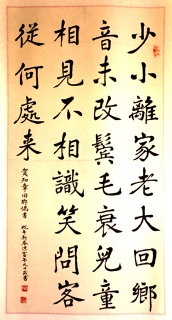 少小離家老大回鄉
音未改鬢毛衰兒童
相見不相識笑問客
從何處来
賀知章回鄉偶書